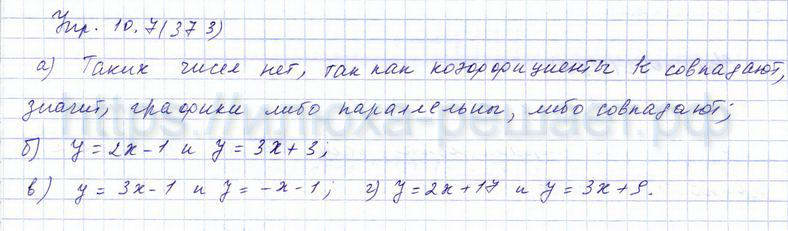 Упр. 10.7(373)
а) Таких чисел нет, так как коэффициенты k совпадают,
значит, графики либо параллельны, либо совпадают;
б) y = 2x - 1 и y = 3x + 3;
в) y = 3x - 1 и y = -x - 1; г) y = 2x + 17 и y = 3x + 9.